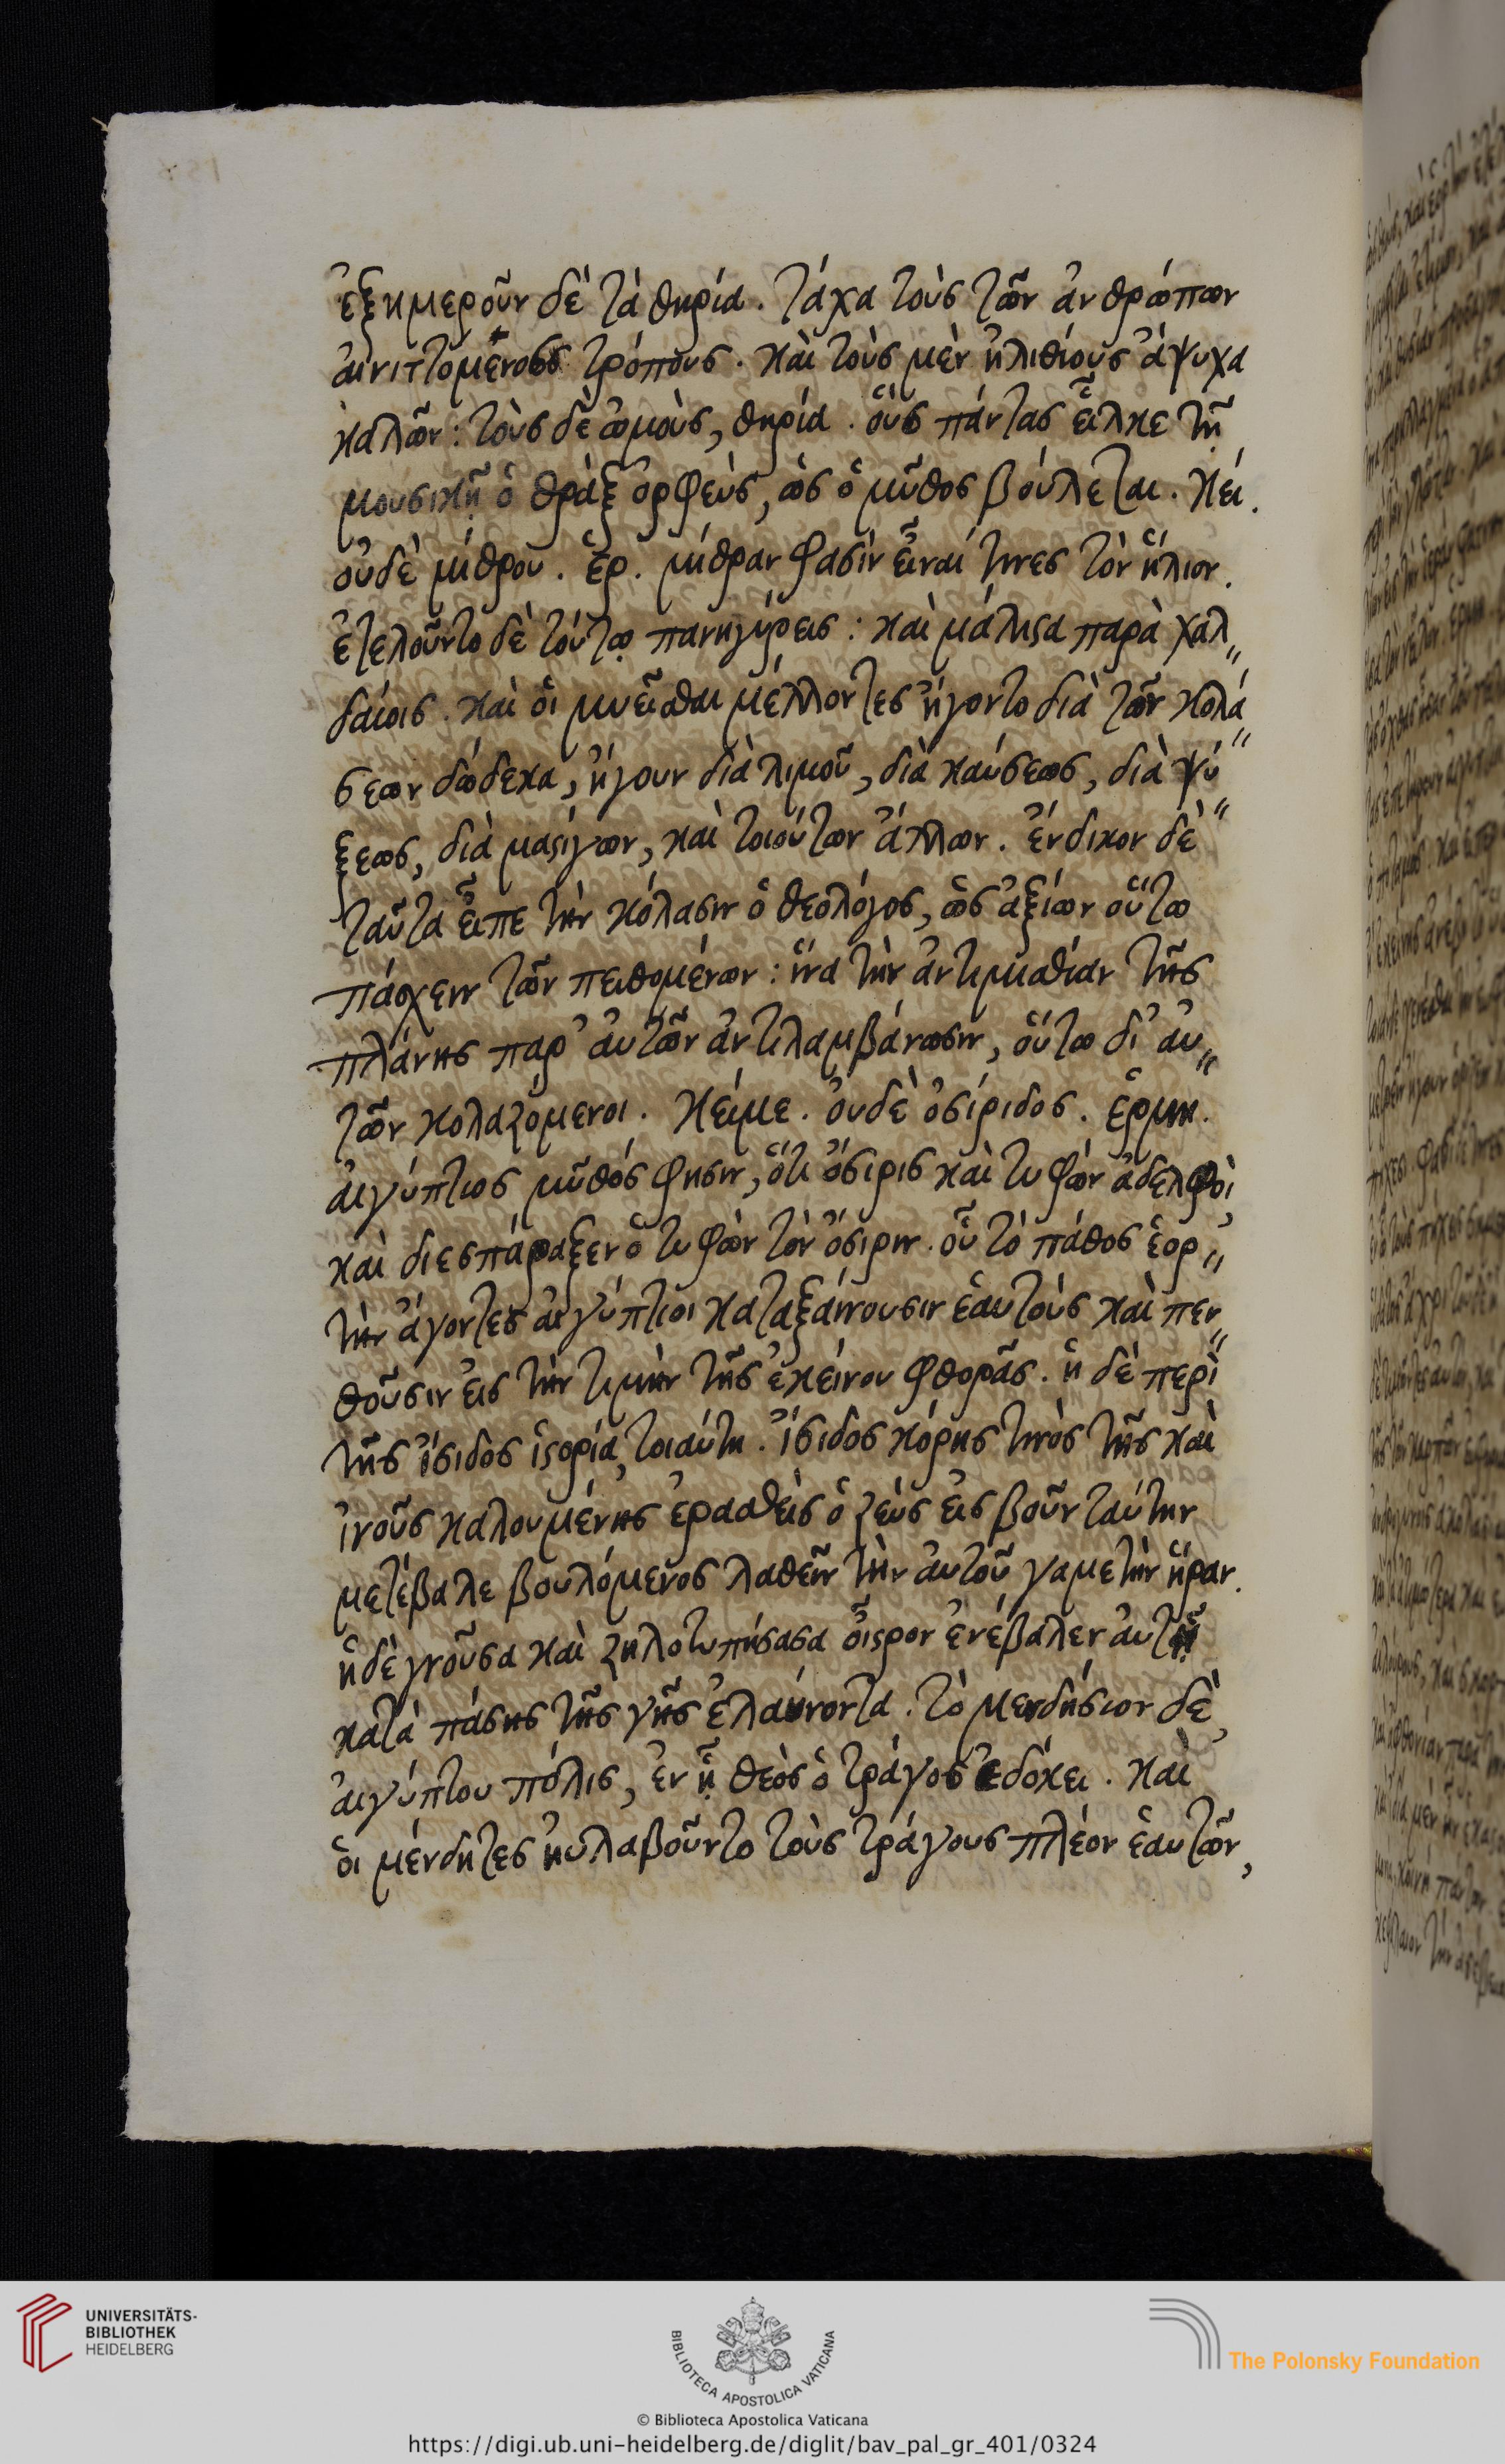 ἐξημεροῦν δὲ τὰ θηρία. τάχα τοὺς τῶν ἀνθρώπων
αἰνιττομένους τρόπους. καὶ τοὺς μὲν ἠλιθίους ἄψυχα
καλῶν: τοὺς δὲ ὠμοὺς, θηρία. οὓς πάντας εἷλκε τῇ
μουσικῇ ὁ θρὰξ ὀρφεὺς, ὡς ὁ μῦθος βούλεται. κεί.
οὐδὲ μίθρου. ἑρ. μίθραν φασὶν εἶναί τινες τὸν ἥλιον.
ἐτελοῦντο δὲ τούτῳ πανηγύρεις: καὶ μάλιϛα παρὰ χαλ〃
δαίοις. καὶ οἱ μυεῖσθαι μέλλοντες ἤγοντο διὰ τῶν κολά〃
σεων δώδεκα, ἤγουν διὰ λιμοῦ, διὰ καύσεως, διὰ ψύ〃
ξεως, διὰ μαϛίγων, καὶ τοιούτων ἄλλων. ἔνδικον δὲ
ταῦτα εἶπε τὴν κόλασιν ὁ θεολόγος, ὡς ἀξίων οὕτω
πάσχειν τῶν πειθομένων: ἵνα τὴν ἀντιμισθίαν τῆς
πλάνης παρ' αὐτῶν ἀντιλαμβάνωσιν, οὕτω δι' αὐ〃
τῶν κολαζόμενοι. κείμε. οὐδὲ ὀσίριδος. ἑρμη.
αἰγύπτιος μῦθός φησιν, ὅτι ὄσιρις καὶ τυφὼν ἀδελφοὶ,
καὶ διεσπάραξεν ὁ τυφὼν τὸν ὄσιριν. οὗ τὸ πάθος ἑορ〃
τὴν ἄγοντες αἰγύπτιοι καταξαίνουσιν ἑαυτοὺς καὶ πεν〃
θοῦσιν εἰς τὴν τιμὴν τῆς ἐκείνου φθορᾶς. ἡ δὲ περὶ
τῆς ἴσιδος ἱϛορία, τοιαύτη. ἴσιδος κόρης τινὸς τῆς καὶ
ἰνοῦς καλουμένης ἐρασθεὶς ὁ ζεὺς εἰς βοῦν ταύτην
μετέβαλε βουλόμενος λαθεῖν τὴν αὐτοῦ γαμετὴν ἥραν.
ἡ δὲ γνοῦσα καὶ ζηλοτυπήσασα οἶϛρον ἐνέβαλεν αὐτῇ
κατὰ πάσης τῆς γῆς ἐλαύνοντα. τὸ μενδήσιον δὲ,
αἰγύπτου πόλις, ἐν ᾗ θεὸς ὁ τράγος ἐδόκει. καὶ
οἱ μένδητες ηὐλαβοῦντο τοὺς τράγους πλέον ἑαυτῶν,
UNIVERSITÄTS-
BIBLIOTHEK
HEIDELBERG
BIBLIOTECA APOSTOLICA VATICANA
The Polonsky Foundation
© Biblioteca Apostolica Vaticana
https://digi.ub.uni-heidelberg.de/diglit/bav_pal_gr_401/0324